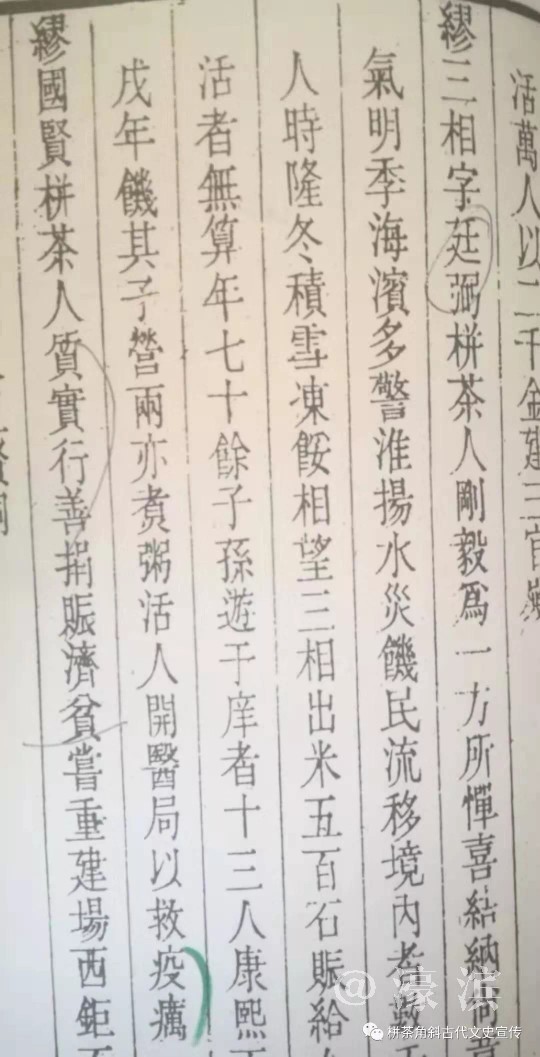 活萬人以二千金建三官殿
繆三相字廷弼栟茶人剛毅爲一方所憚喜結納尚
氣明季海濱多警淮揚水災饑民流移境內者數
人時隆冬積雪凍餒相望三相出米五百石賑給
活者無算年七十餘子孫遊于庠者十三人康熙
戊年饑其子營兩亦煮粥活人開醫局以救疫癘
繆國賢栟茶人質實行善捐賑濟貧嘗重建場西鉅
@濠滨
栟茶角斜古代文史宣传